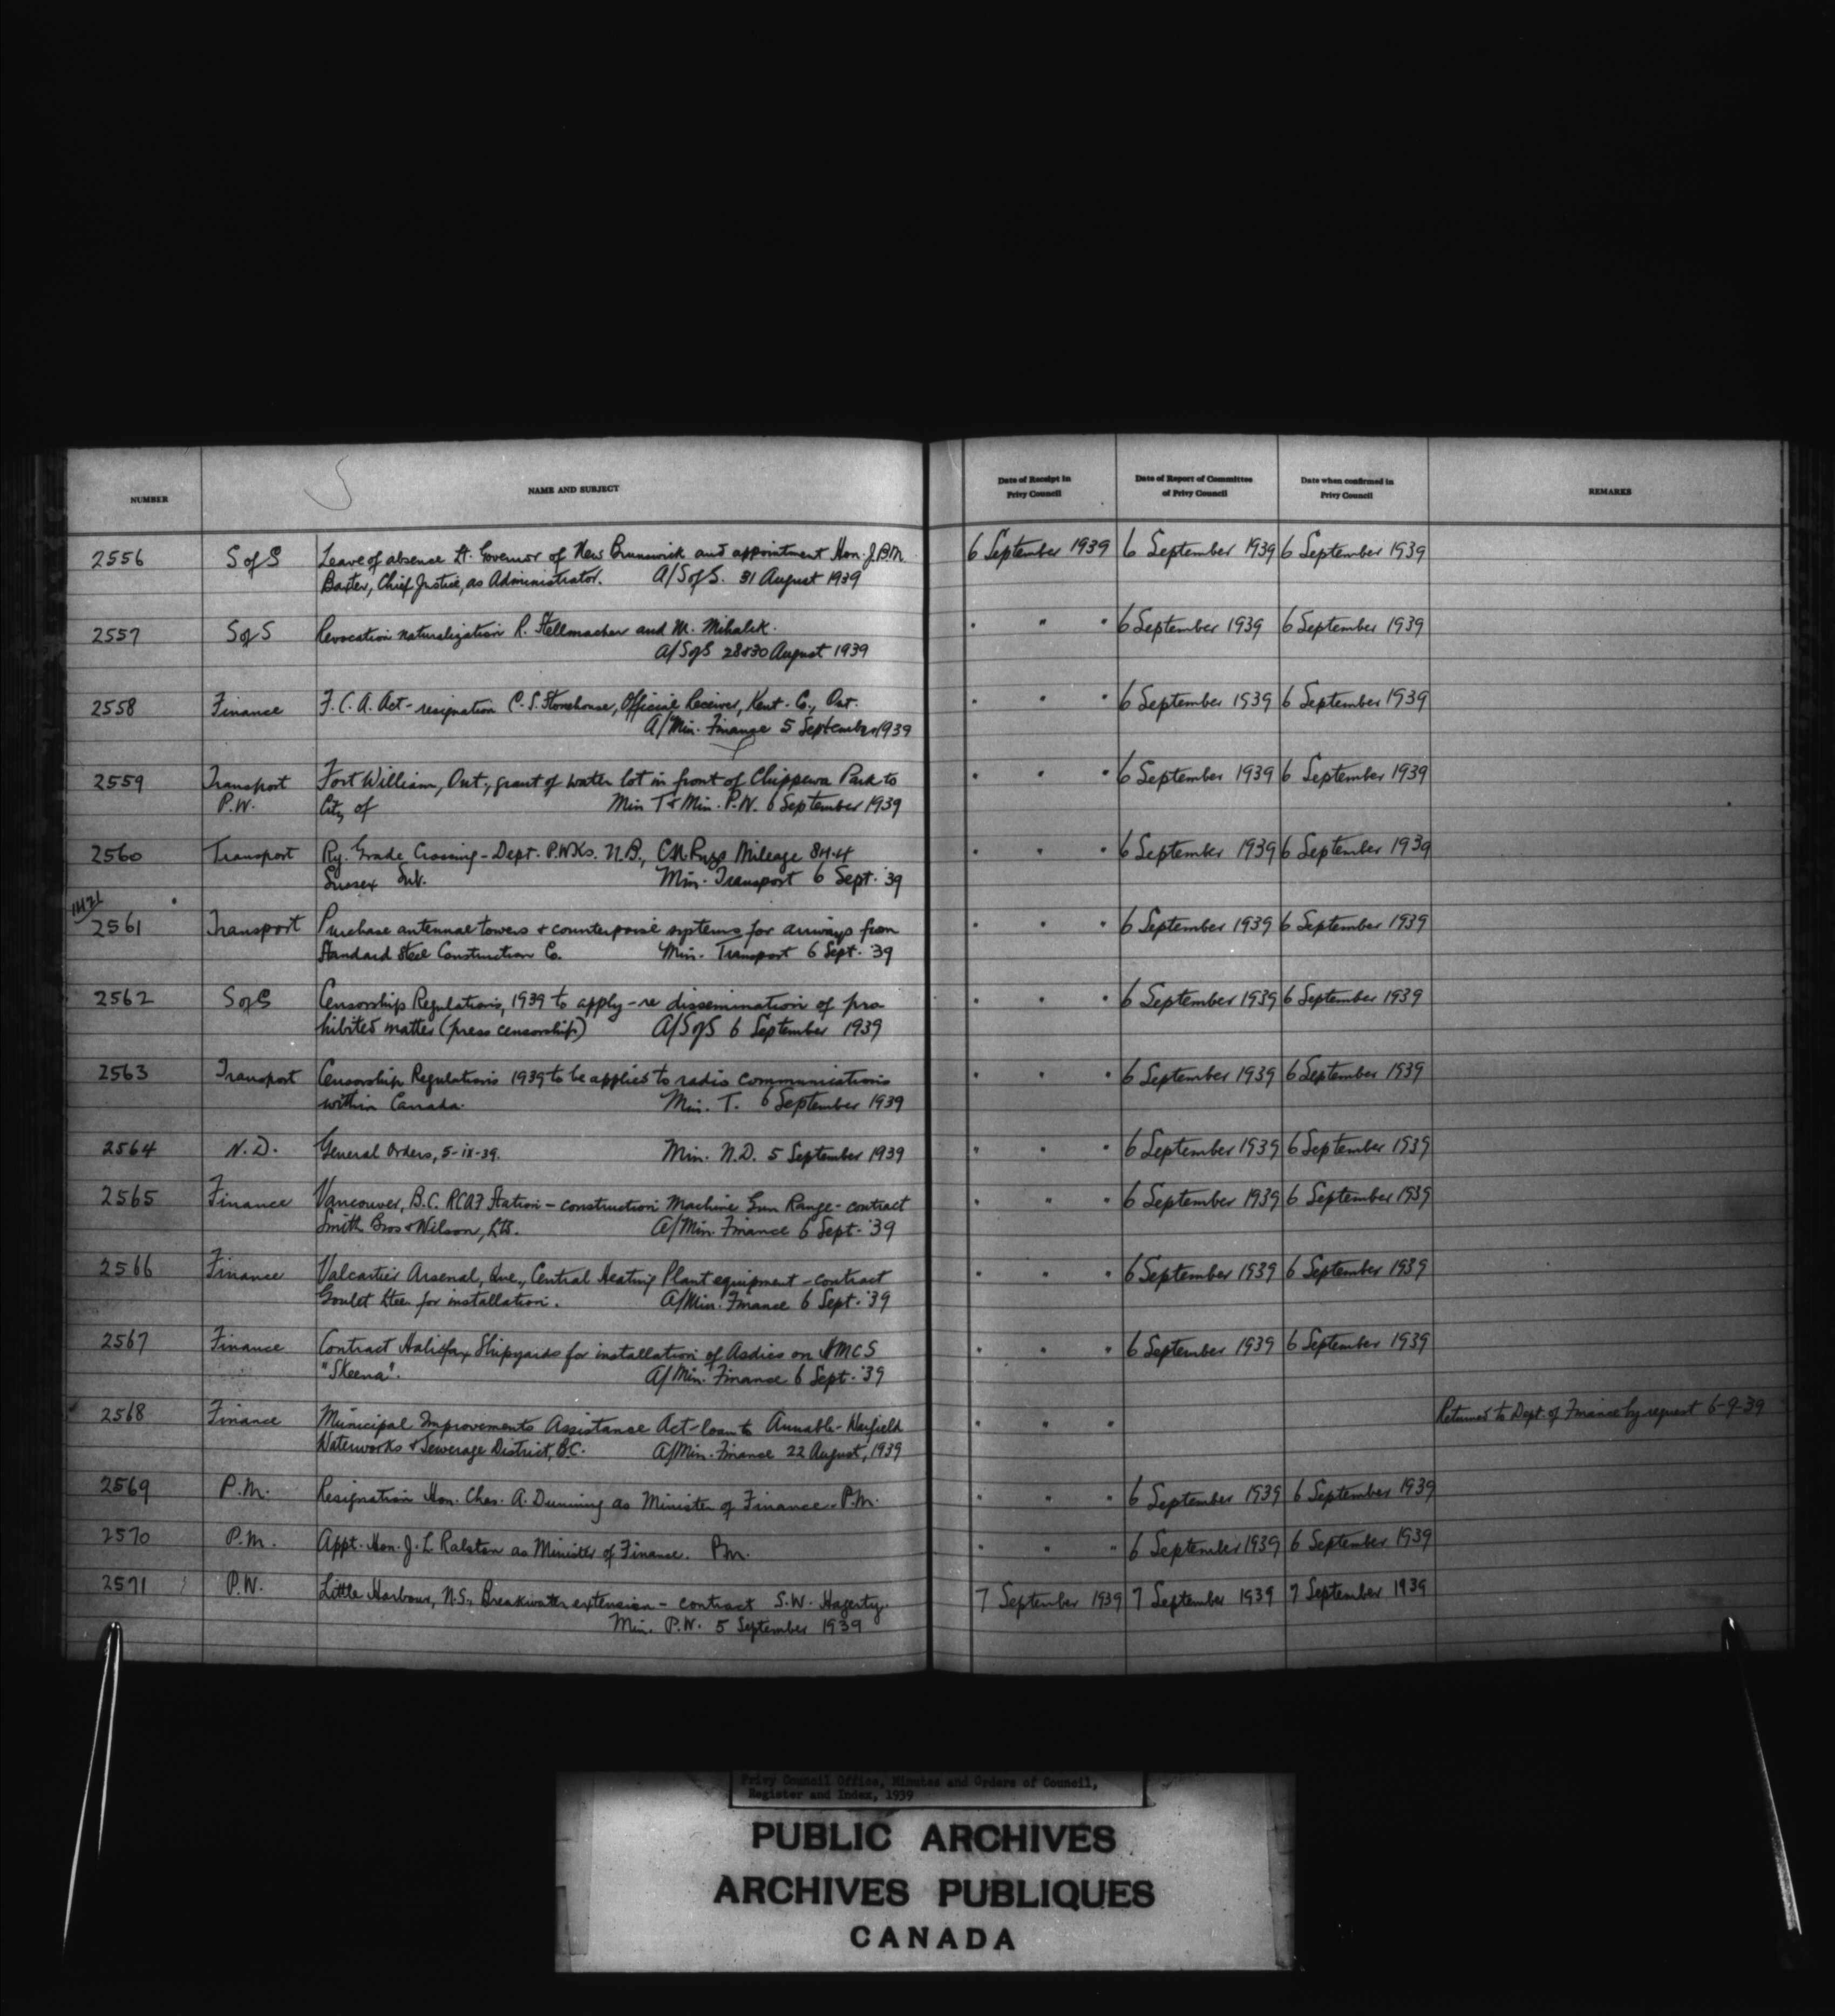 NUMBER NAME AND SUBJECT Date of Receipt in Privy Council Date of Report of Committee of Privy Council Date when confirmed in Privy Council REMARKS
2556 S of S Leave of absence Lt. Governor of New Brunswick and appointment Hon. J.B.M. 6 September 1939 6 September 1939 6 September 1939
Baxter, Chief Justice, as Administrator. A/S of S. 31 August 1939
2557 S of S Revocation naturalization R. Stellmacher and M. Mihalik. " " " 6 September 1939 6 September 1939
A/S of S 28&30 August 1939
2558 Finance F.C.A. Act - resignation C.S. Stonehouse, Official Receiver, Kent Co., Ont. " " " 6 September 1939 6 September 1939
A/Min. Finance 5 September 1939
2559 Transport Fort William, Ont., grant of water lot in front of Chippewa Park to " " " 6 September 1939 6 September 1939
P.W. City of Min T & Min. P.W. 6 September 1939
2560 Transport Ry. Grade Crossing - Dept. P.Wks. N.B., C.N.Rwys Mileage 84.4 " " " 6 September 1939 6 September 1939
Sussex Sub. Min. Transport 6 Sept. '39
2561 Transport Purchase antennae towers & counterpoise systems for airways from " " " 6 September 1939 6 September 1939
Standard Steel Construction Co. Min. Transport 6 Sept. '39
2562 S of S Censorship Regulations, 1939 to apply - re dissemination of pro " " " 6 September 1939 6 September 1939
hibited matter (press censorship) A/S of S 6 September 1939
2563 Transport Censorship Regulations 1939 to be applied to radio communications " " " 6 September 1939 6 September 1939
within Canada. Min. T. 6 September 1939
2564 N.D. General Orders, 5-ix-39. Min. N.D. 5 September 1939 " " " 6 September 1939 6 September 1939
2565 Finance Vancouver, B.C. RCAF Station - construction Machine Gun Range - contract " " " 6 September 1939 6 September 1939
Smith Bros & Wilson, Ltd. A/Min. Finance 6 Sept. '39
2566 Finance Valcartier Arsenal, Que., Central Heating Plant equipment - contract " " " 6 September 1939 6 September 1939
Goulet for installation. A/Min. Finance 6 Sept. '39
2567 Finance Contract Halifax Shipyards for installation of Asdics on HMCS " " " 6 September 1939 6 September 1939
"Skeena". A/Min. Finance 6 Sept. '39
2568 Finance Municipal Improvements Assistance Act - loan to Annable-Warfield " " " Returned to Dept. of Finance by request 6-9-39
Waterworks & Sewerage District, B.C. A/Min. Finance 22 August, 1939
2569 P.M. Resignation Hon. Chas. A. Dunning as Minister of Finance. P.M. " " " 6 September 1939 6 September 1939
2570 P.M. Appt. Hon. J.L. Ralston as Minister of Finance. P.M. " " " 6 September 1939 6 September 1939
2571 P.W. Little Harbour, N.S., Breakwater extension - contract S.W. Hagerty. 7 September 1939 7 September 1939 7 September 1939
Min. P.W. 5 September 1939
Privy Council Office, Minutes and Orders of Council,
Register and Index, 1939
PUBLIC ARCHIVES
ARCHIVES PUBLIQUES
CANADA